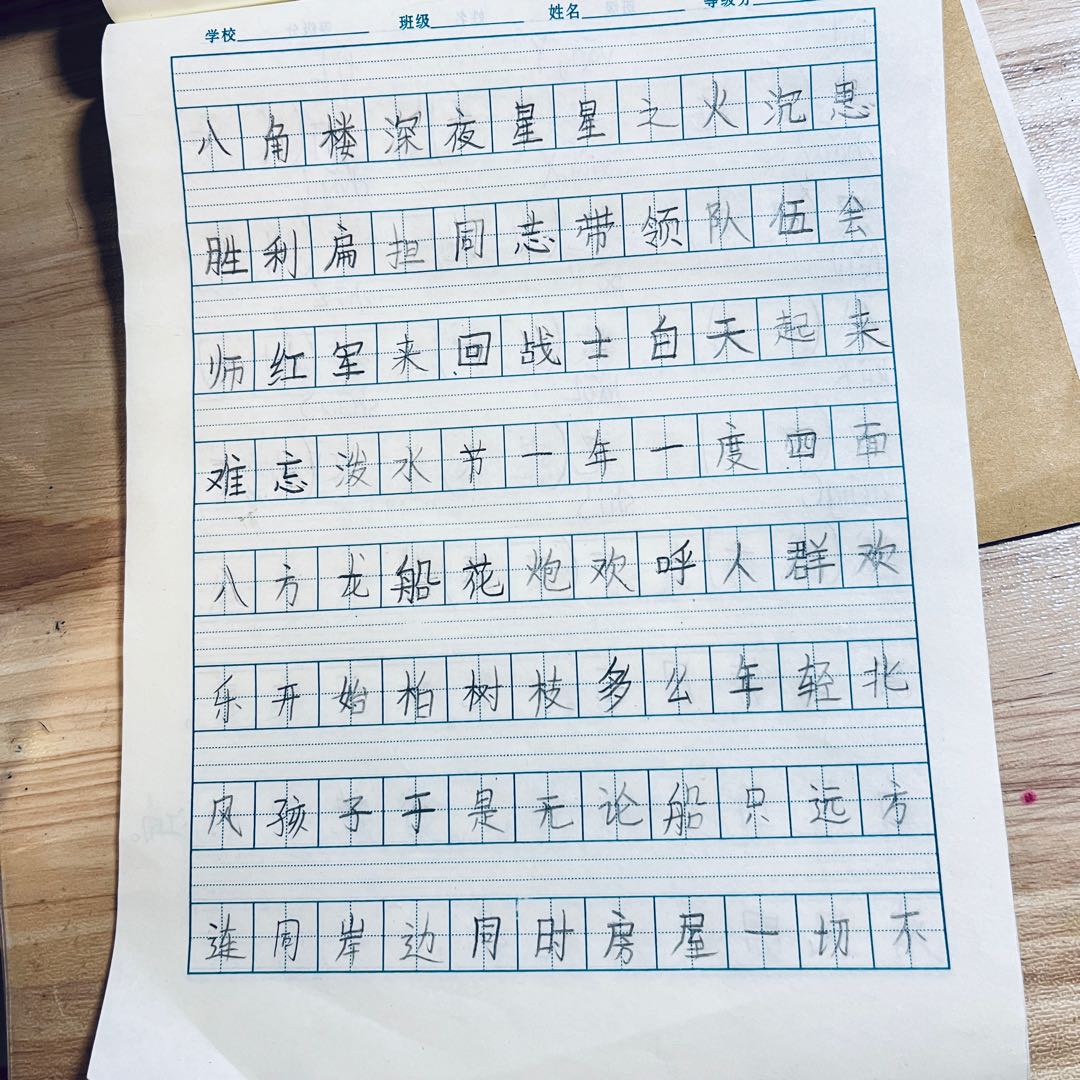 学校 班级 姓名 等级分
八角楼深夜星星之火沉思
胜利扁担同志带领队伍会
师红军来回战士白天起来
难忘泼水节一年一度四面
八方龙船花炮欢呼人群欢
乐开始柏树枝多么年轻北
风孩子于是无论船只远方
连同岸边同时房屋一切不